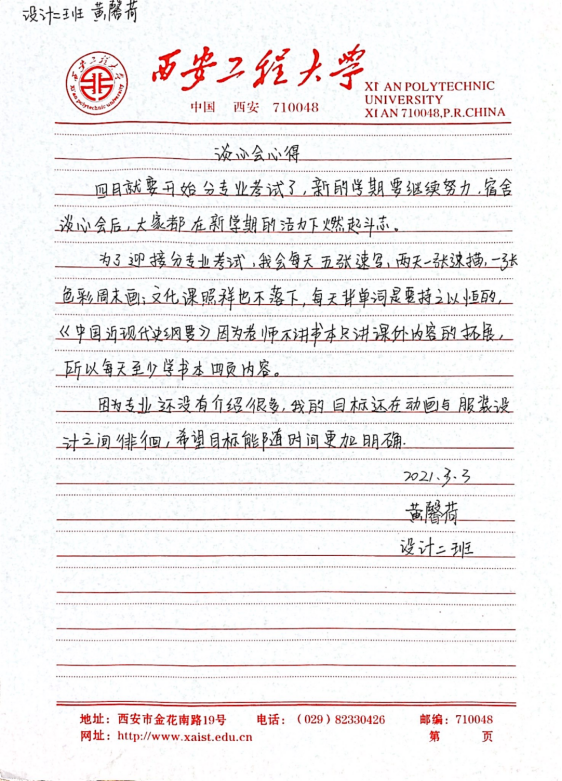 设计二班 黄馨荷
西安工程大学
XI AN POLYTECHNIC
UNIVERSITY
XI AN 710048,P.R.CHINA
中国 西安 710048
谈心会心得
四月就要开始分专业考试了，新的学期要继续努力，宿舍
谈心会后，大家都在新学期的活力下燃起斗志。
为了迎接分专业考试，我会每天五张速写，两天一张速描，一张
色彩周末画；文化课照样也不落下，每天背单词是要持之以恒的，
《中国近现代史纲要》因为老师不讲书本只讲课外内容的拓展，
所以每天至少学书本四页内容。
因为专业还没有介绍很多，我的目标还在动画与服装设
计之间徘徊，希望目标能随时间更加明确.
2021.3.3
黄馨荷
设计二班
地址：西安市金花南路19号 电话：（029）82330426 邮编：710048
网址：http://www.xaist.edu.cn 第 页